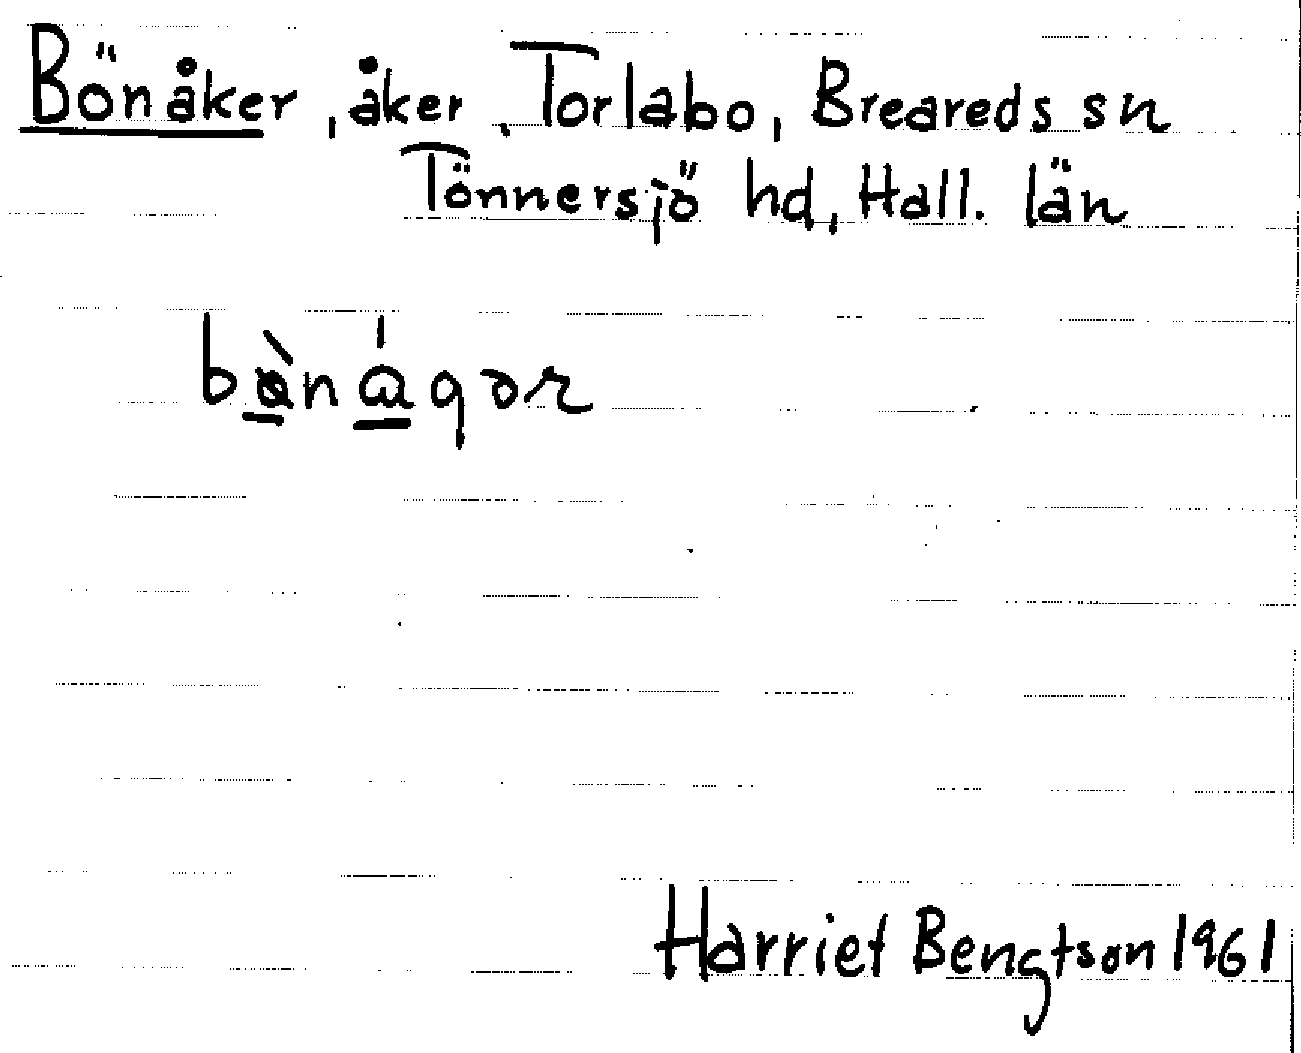 Bönåker, åker, Torlabo, Breareds sn
Tönnersjö hd, Hall. län
bø̀nágər
Harriet Bengtson 1961